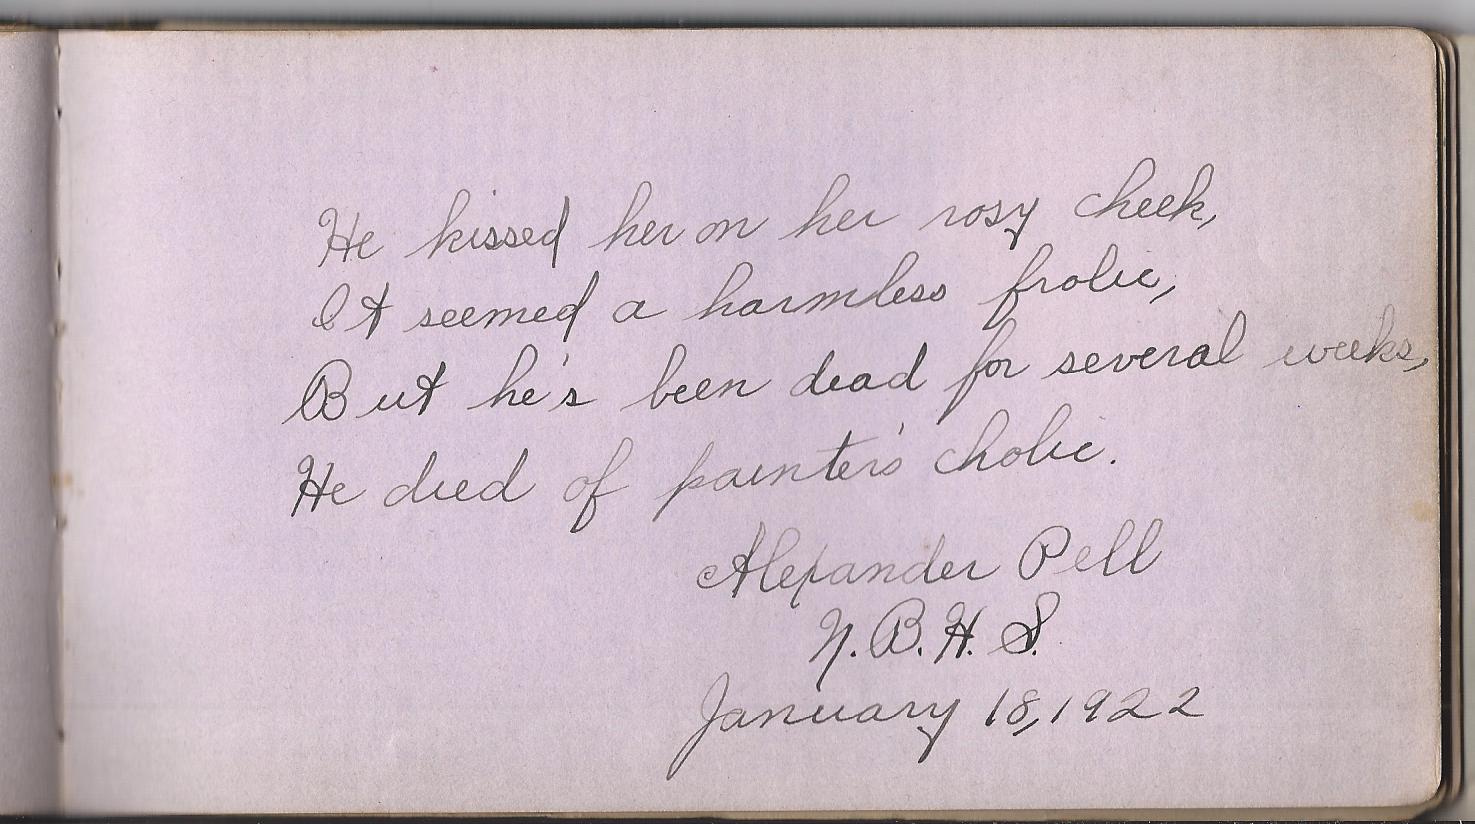 He kissed her on her rosy cheek,
It seemed a harmless frolic,
But he's been dead for several weeks,
He died of painter's cholic.
Alexander Pell
N.B.H.S.
January 18, 1922